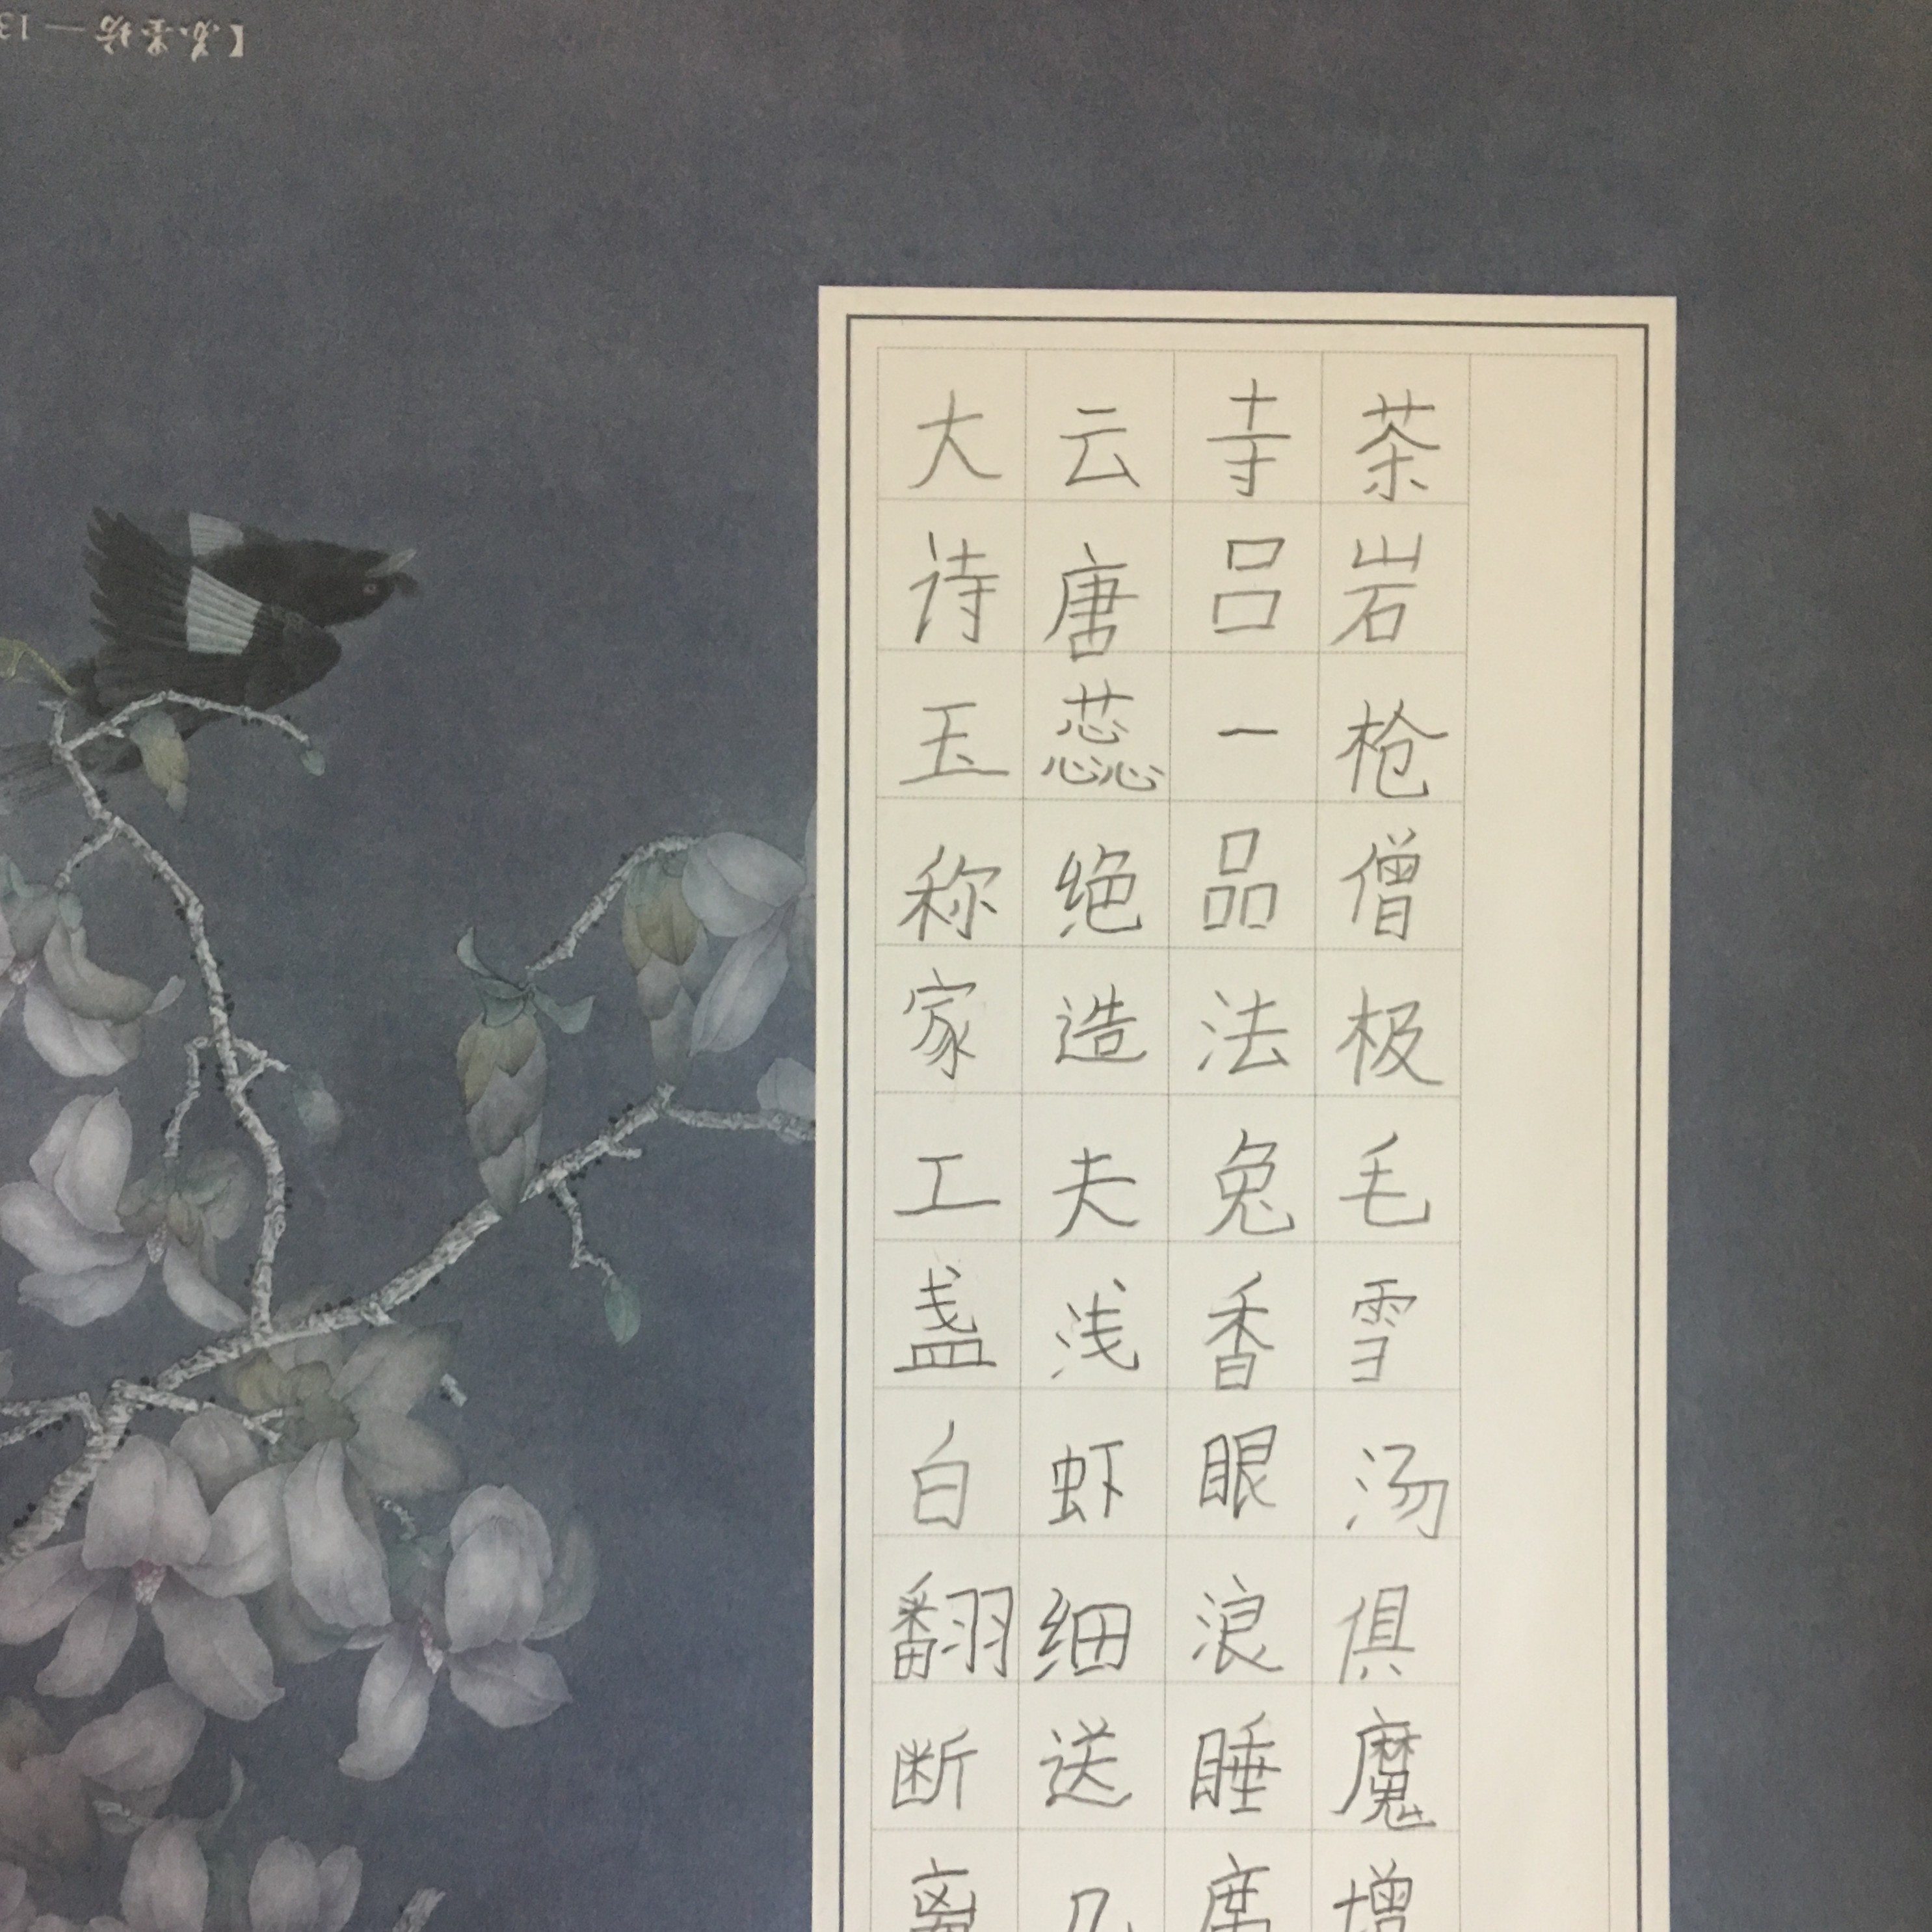 大云寺茶
诗唐吕岩
玉蕊一枪
称绝品僧
家造法极
工夫兔毛
盏浅香雪
白虾眼汤
翻细浪俱
断送睡魔
离几席增